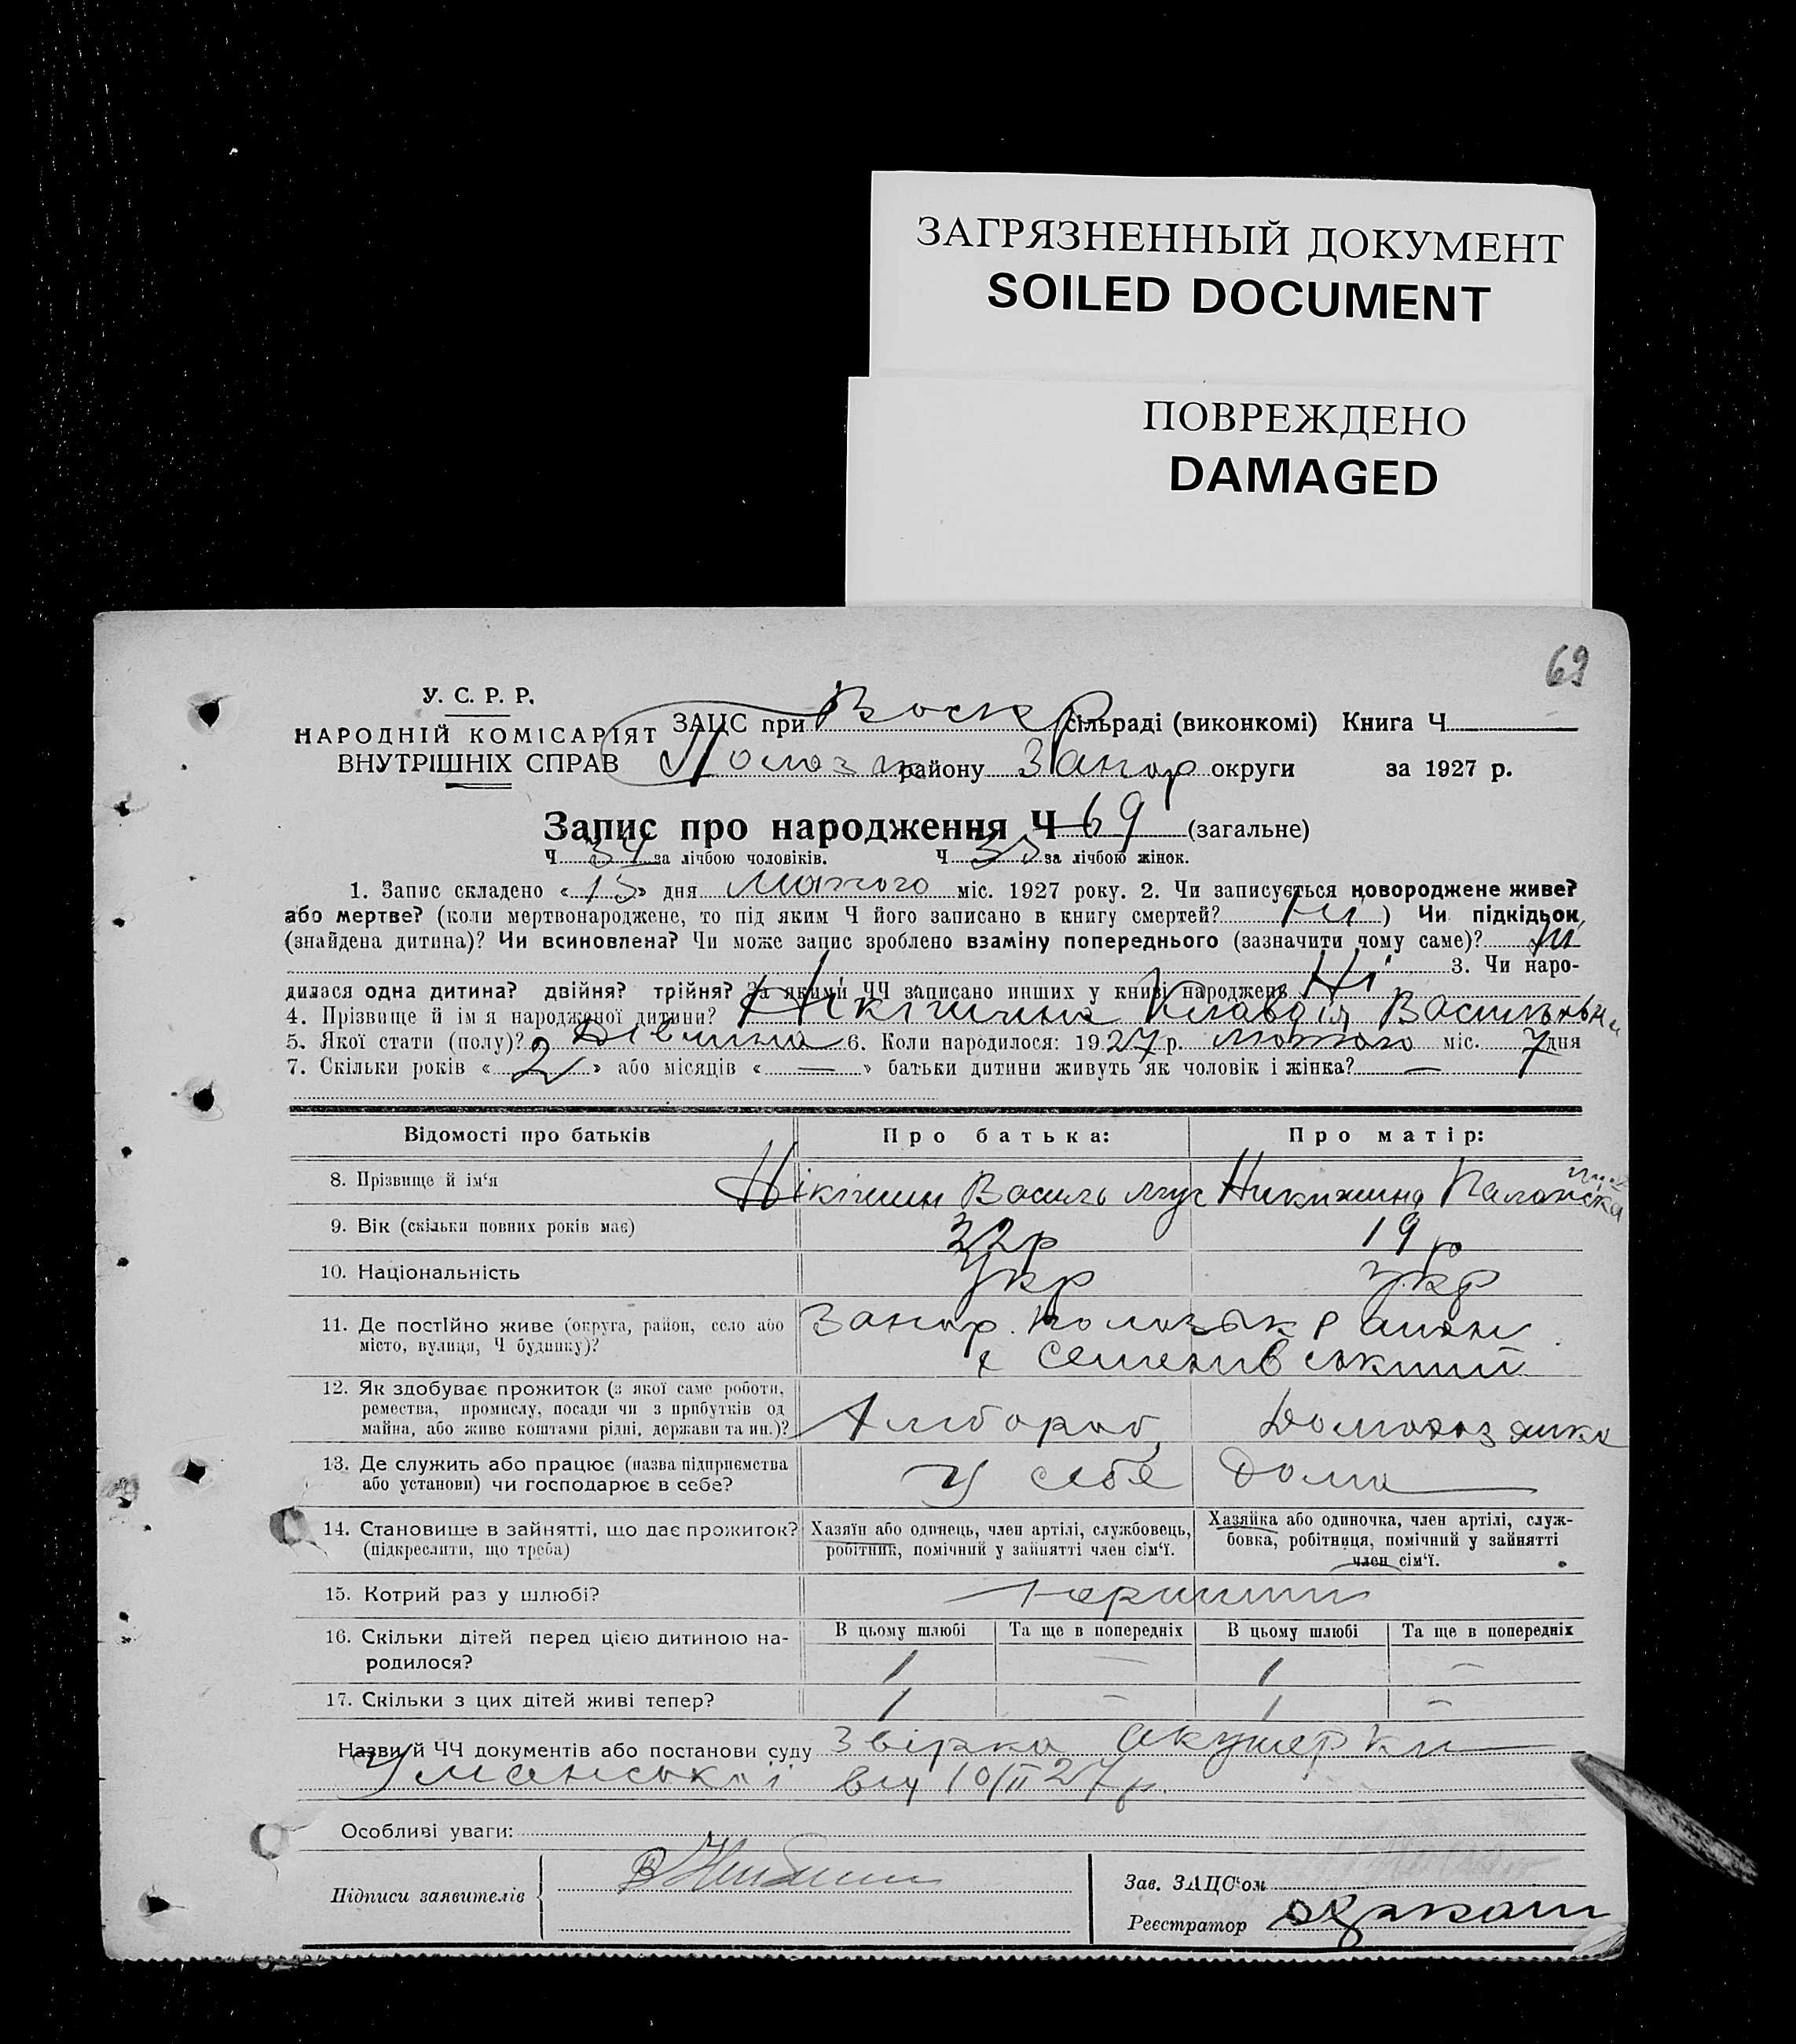 ЗАГРЯЗНЕННЫЙ ДОКУМЕНТ
SOILED DOCUMENT
ПОВРЕЖДЕНО
DAMAGED
69
У. С. Р. Р.
НАРОДНІЙ КОМІСАРІЯТ
ВНУТРІШНІХ СПРАВ
ЗАЦС при Воскр сільраді (виконкомі) Книга Ч
району Запор округи за 1927 р.
Запис про народження Ч 69 (загальне)
Ч 34 за лічбою чоловіків. Ч 35 за лічбою жінок.
1. Запис складено «15» дня Лютого міс. 1927 року. 2. Чи записується новороджене живе?
або мертве? (коли мертвонароджене, то під яким Ч його записано в книгу смертей? Ні) Чи підкідьок
(знайдена дитина)? Чи всиновлена? Чи може запис зроблено взаміну попереднього (зазначити чому саме)? Ні
3. Чи наро-
дилася одна дитина? двійня? трійня? За якими ЧЧ записано инших у книзі народжень Ні
4. Прізвище й ім'я народженої дитини? Нікішина Клавдія Васильевна
5. Якої стати (полу)? Дівчина 6. Коли народилося: 1927 р. лютого міс. 7 дня
7. Скільки років «2» або місяців «—» батьки дитини живуть як чоловік і жінка? —
Відомості про батьків Про батька: Про матір:
8. Прізвище й ім'я Нікішин Василь Никишина
9. Вік (скільки повних років має) 22р 19 р
10. Національність Укр Укр
11. Де постійно живе (округа, район, село або
місто, вулиця, Ч будинку)? Запор. район
х Семенивський
12. Як здобуває прожиток (з якої саме роботи,
ремества, промислу, посади чи з прибутків од
майна, або живе коштами рідні, держави та ин.)? Хлібороб Домохозяйка
13. Де служить або працює (назва підприємства
або установи) чи господарює в себе? У себе Дома
14. Становище в зайнятті, що дає прожиток?
(підкреслити, що треба)
Хазяїн або одинець, член артілі, службовець,
робітник, помічний у зайнятті член сім'ї.
Хазяйка або одиночка, член артілі, служ-
бовка, робітниця, помічний у зайнятті
член сім'ї.
15. Котрий раз у шлюбі? перший
16. Скільки дітей перед цією дитиною на-
родилося?
В цьому шлюбі Та ще в попередніх В цьому шлюбі Та ще в попередніх
1 — 1 —
17. Скільки з цих дітей живі тепер? 1 — 1 —
Назви й ЧЧ документів або постанови суду Звірка акушерки
Уманської від 10/II 27р.
Особливі уваги:
Підписи заявителів
Зав. ЗАЦС'ом
Реєстратор